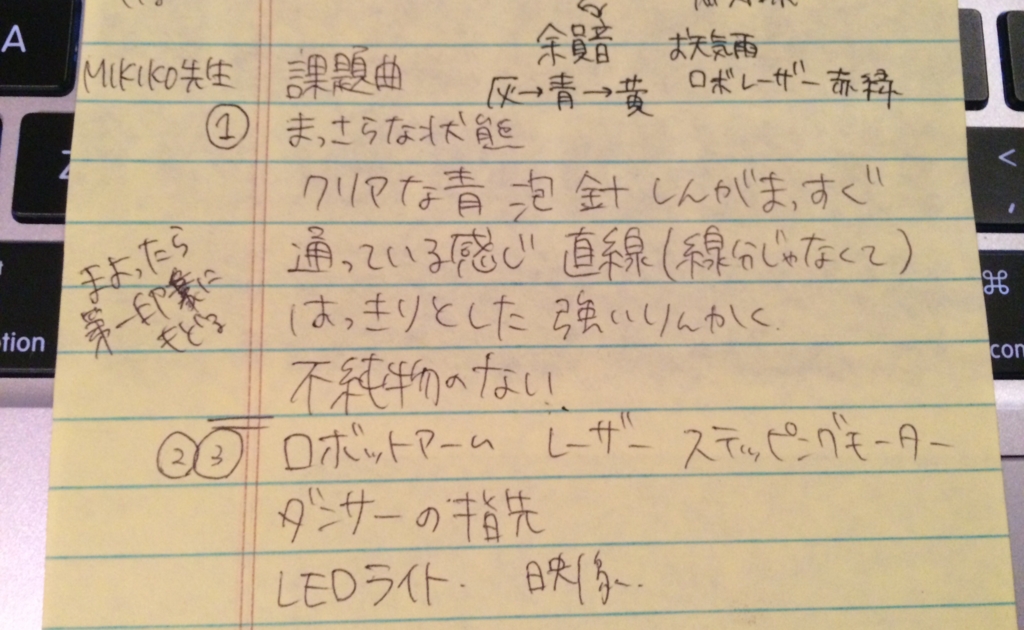 余員音 お天気雨
MIKIKO先生 課題曲 灰→青→黄 ロボレーザー 赤緑
① まっさらな状態
クリアな青 泡 針 しんがまっすぐ
通っている感じ 直線(線分じゃなくて)
まよったら
第一印象に
もどる
はっきりとした 強いりんかく
不純物のない!
②③ ロボットアーム レーザー ステッピングモーター
ダンサーの指先
LEDライト. 映像..
A
Z
option
<
,
⌘
com